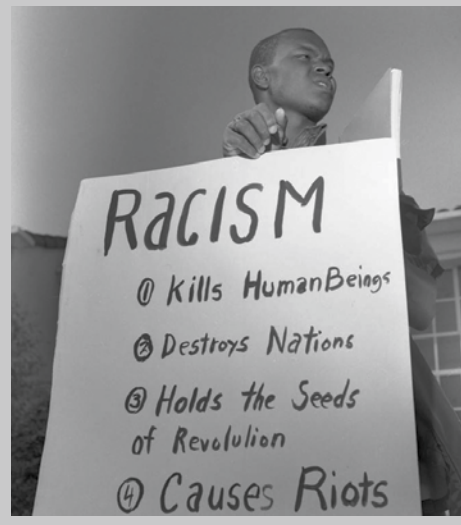 RacISM
① Kills Human Beings
② Destroys Nations
③ Holds the Seeds
of Revolulion
④ Causes Riots